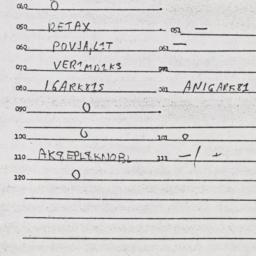 040 0
050 RETAX 051 —
060 POVJA,LIT 061 —
070 VER1MD1K3
080 16ARK81S 081 ANIGARK81
090 0
100 0 101 0
110 AK9EPL9KNOBL 111 -/ +
120 0